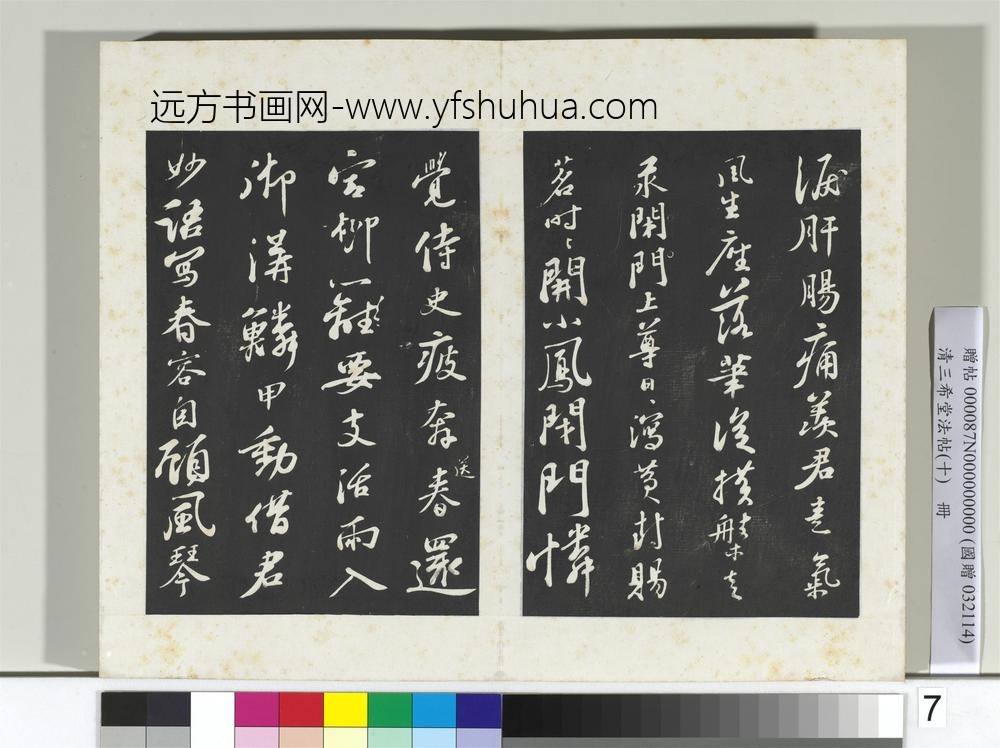 远方书画网-www.yfshuhua.com
淚肝腸痛羨君意氣
風生座落筆縱横盤走
汞閑門上尊日、瀉黄封賜
茗時、開小鳳閉門憐
覺侍史疲奔春還
送
宮柳罷要支活雨入
御溝鱗甲動借君
妙語寫春容自顧風琴
贈帖 000087N000000000 (國贈 032114)
清三希堂法帖(十) 冊
7